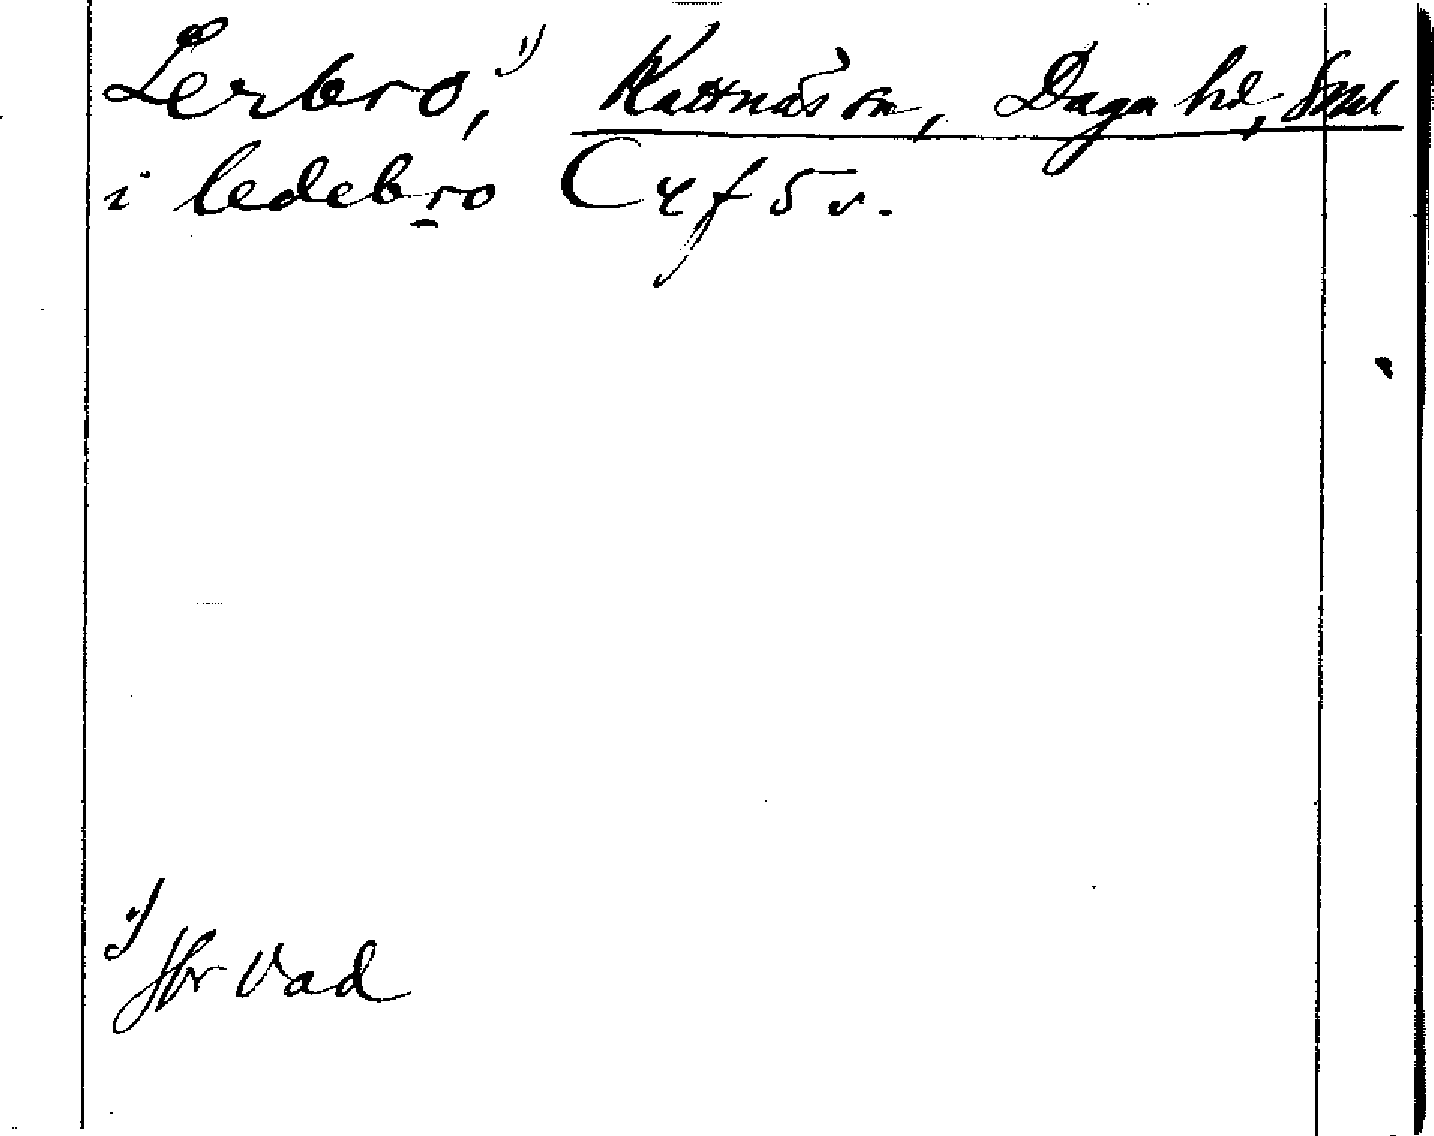 Lerbro,¹⁾ Kattnäs sn, Daga hd, Sml
i ledebro C 4 f 5 v.
¹⁾ Jfr Vad